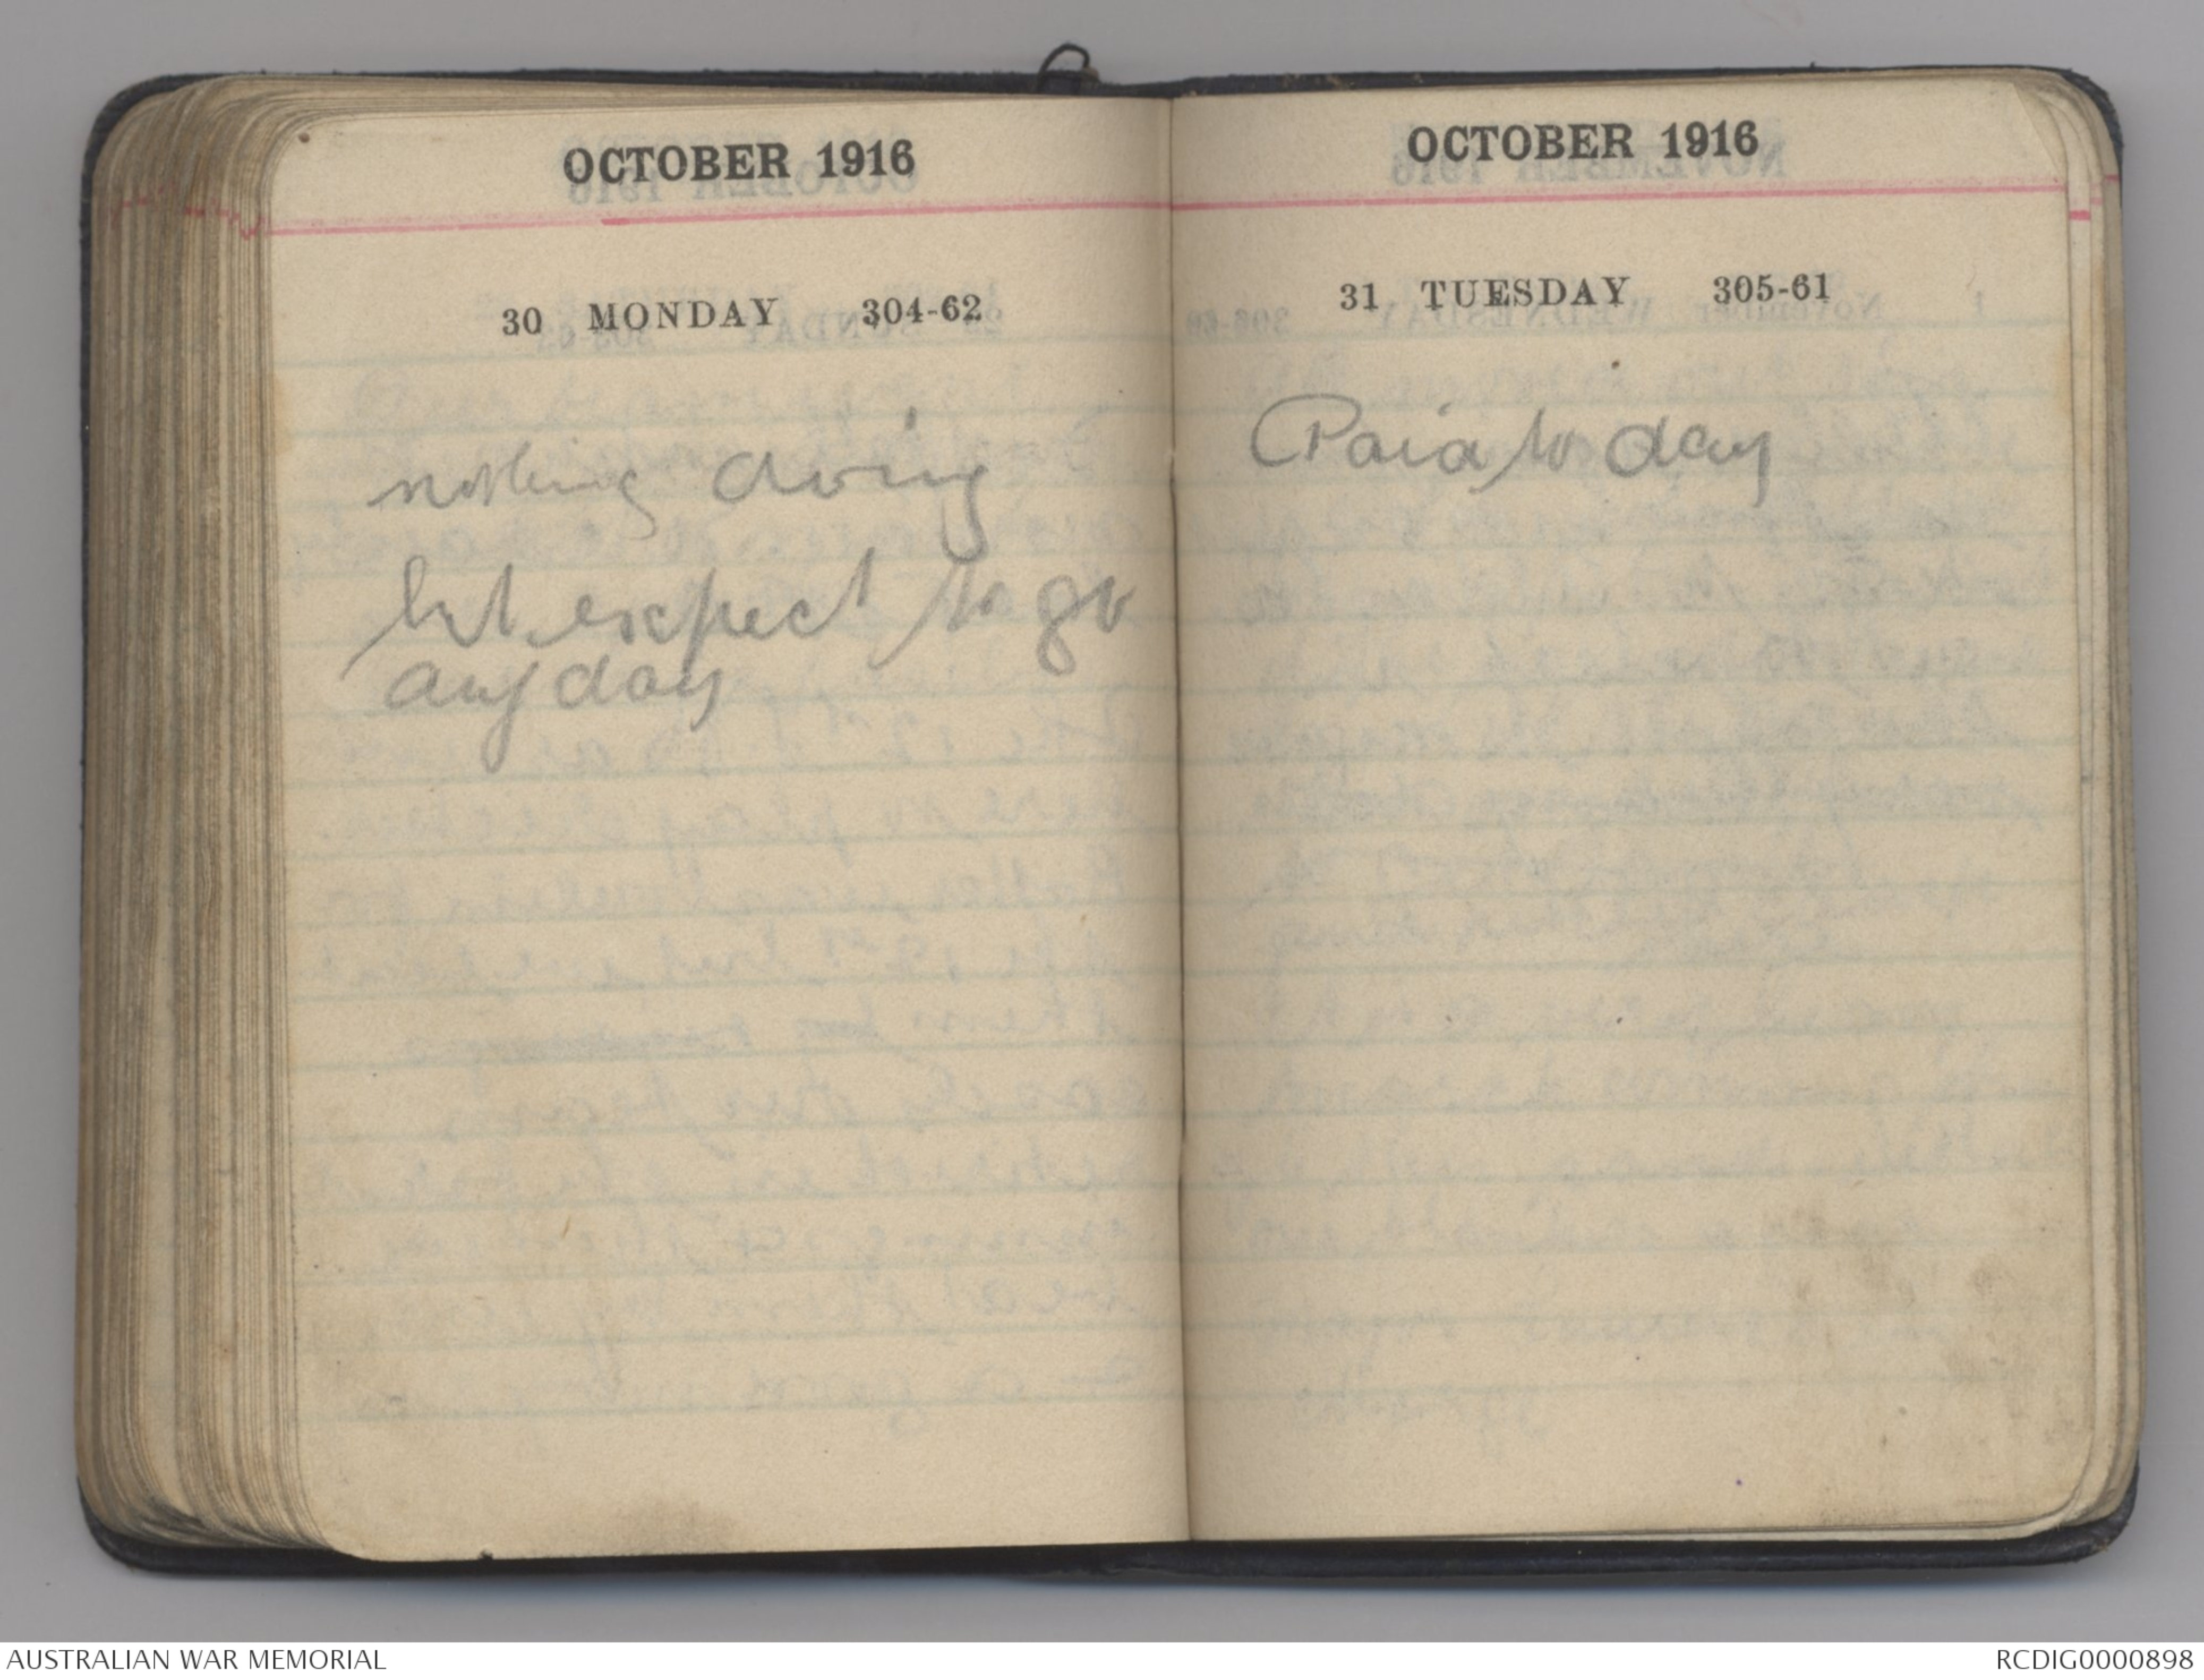 OCTOBER 1916
30 MONDAY 304-62
nothing doing
but expect to go
any day
OCTOBER 1916
31 TUESDAY 305-61
Paid to day
AUSTRALIAN WAR MEMORIAL
RCDIG0000898